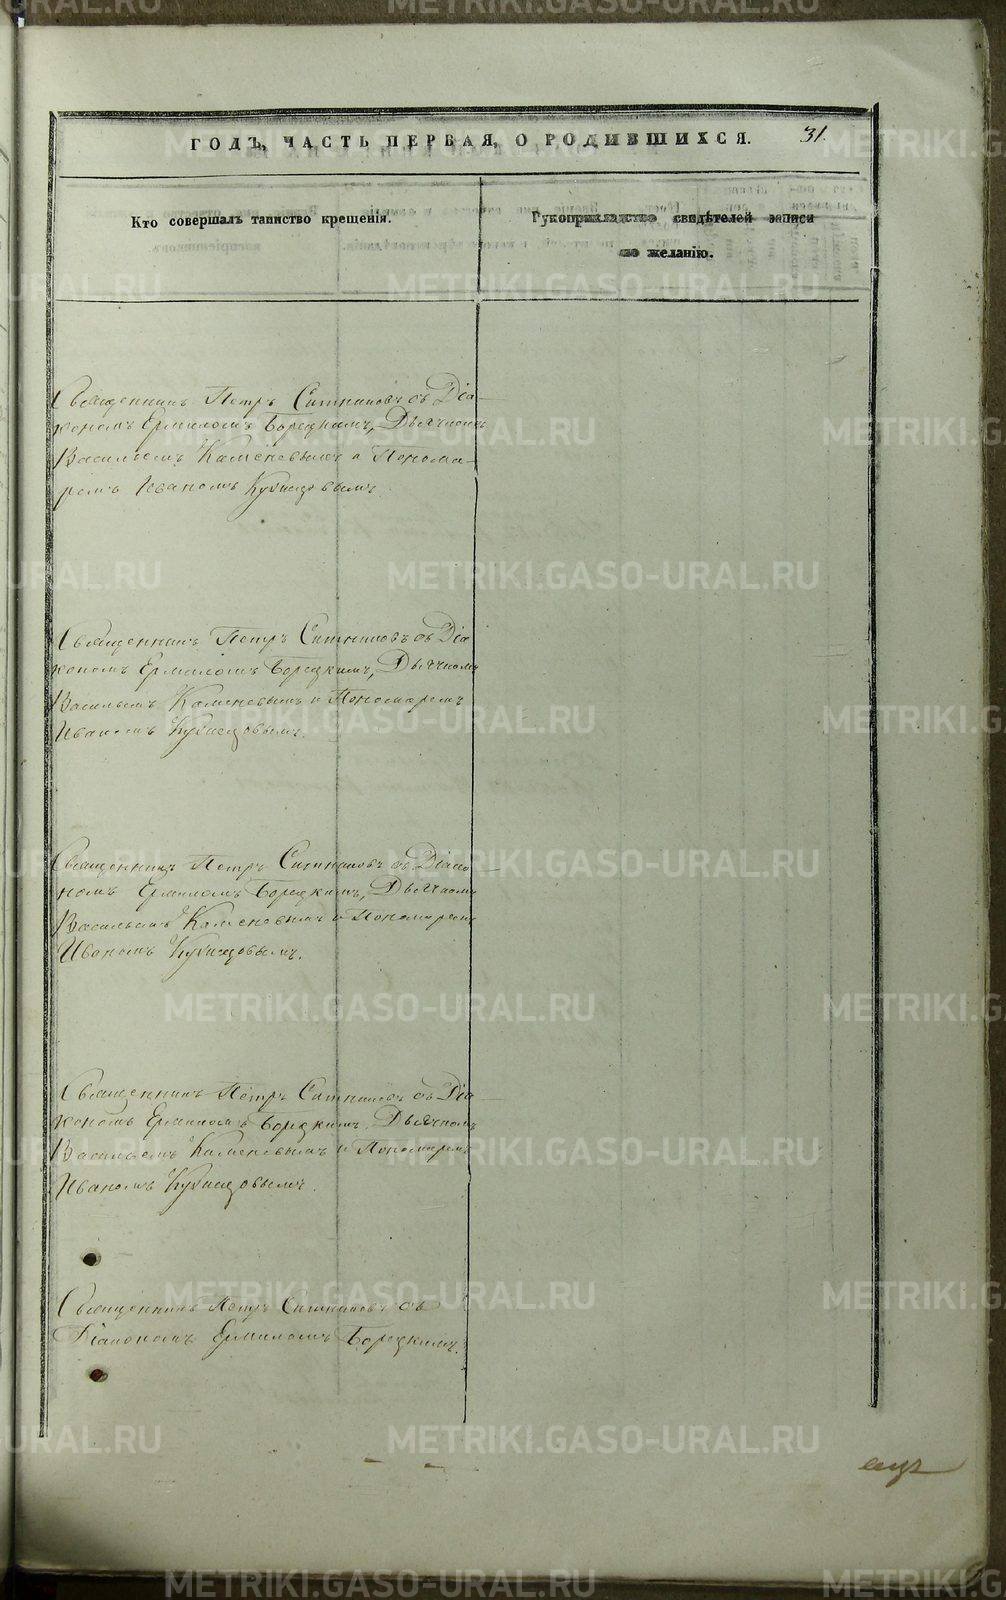 ГОДЪ, ЧАСТЬ ПЕРВАЯ, О РОДИВШИХСЯ.
31.
Кто совершалъ таинство крещенія.
Рукоприкладство свидѣтелей записи
по желанію.
Священникъ Петръ Ситниковъ съ Діа-
кономъ Ермиломъ Борецкимъ, Дьячкомъ
Васильемъ Каменевымъ и Понома-
ремъ Иваномъ Кузнецовымъ
Священникъ Петръ Ситниковъ съ Діа
кономъ Ермиломъ Борецкимъ, Дьячкомъ
Васильемъ Каменевымъ и Пономаремъ
Иваномъ Кузнецовымъ
Священникъ Петръ Ситниковъ съ Діако
номъ Ермиломъ Борецкимъ, Дьячкомъ
Васильемъ Каменевымъ и Пономаремъ
Иваномъ Кузнецовымъ.
Священникъ Петръ Ситниковъ съ Діа
кономъ Ермиломъ Борецкимъ, Дьячкомъ
Васильемъ Каменевымъ и Пономаремъ
Иваномъ Кузнецовымъ.
Священникъ Петръ Ситниковъ съ
Діакономъ Ермиломъ Борецкимъ.
METRIKI.GASO-URAL.RU